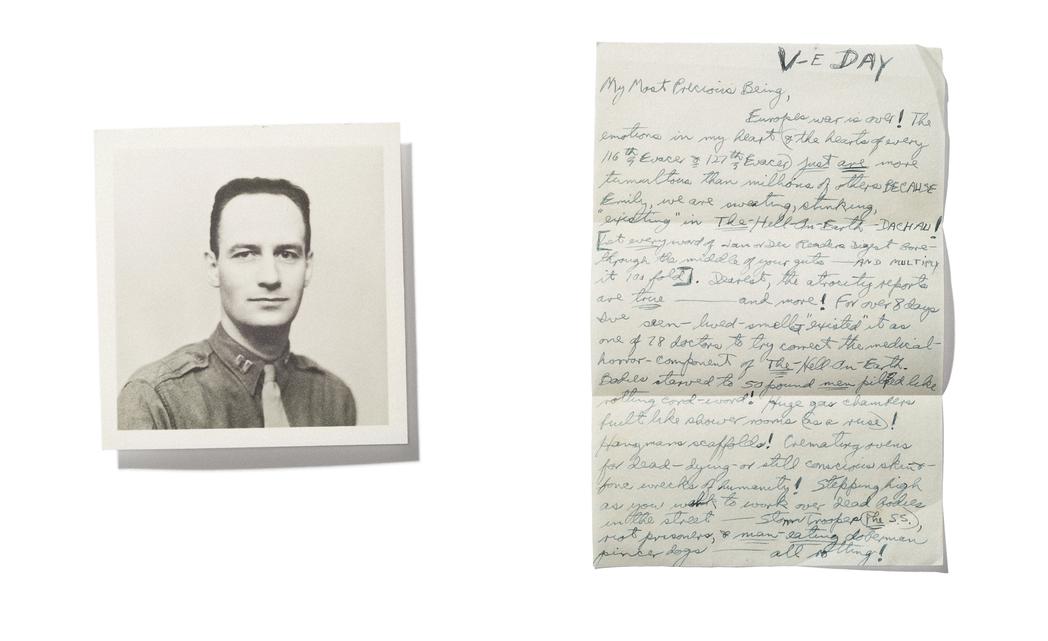 V-E DAY
My Most Precious Being,
Europes war is over! The
emotions in my heart (& the hearts of every
116th Evacer & 127th Evacer) just are more
tumultous than millions of others BECAUSE
Emily, we are sweating, stinking,
"existing" in The-Hell-On-Earth-DACHAU!
[Let every word of Jan or Dec Readers Digest bore-
through the middle of your guts — AND MULTIPLY
it 100 fold]. Dearest, the atrocity reports
are true — and more! For over 8 days
I've seen-lived-smelled "existed" it as
one of 28 doctors to try correct the medical-
horror-component of The-Hell-On-Earth.
Bodies starved to 50 pound men piled like
rotting cord-wood! Huge gas chambers
built like shower rooms (as a ruse)!
Hangmans scaffolds! Cremating ovens
for dead-dying-or still conscious skin-&-
bone wrecks of humanity! Stepping high
as you walk to work over dead bodies
in the street — Storm Troopers (The S.S.),
riot prisoners, & man-eating doberman
pincer dogs — all rotting!